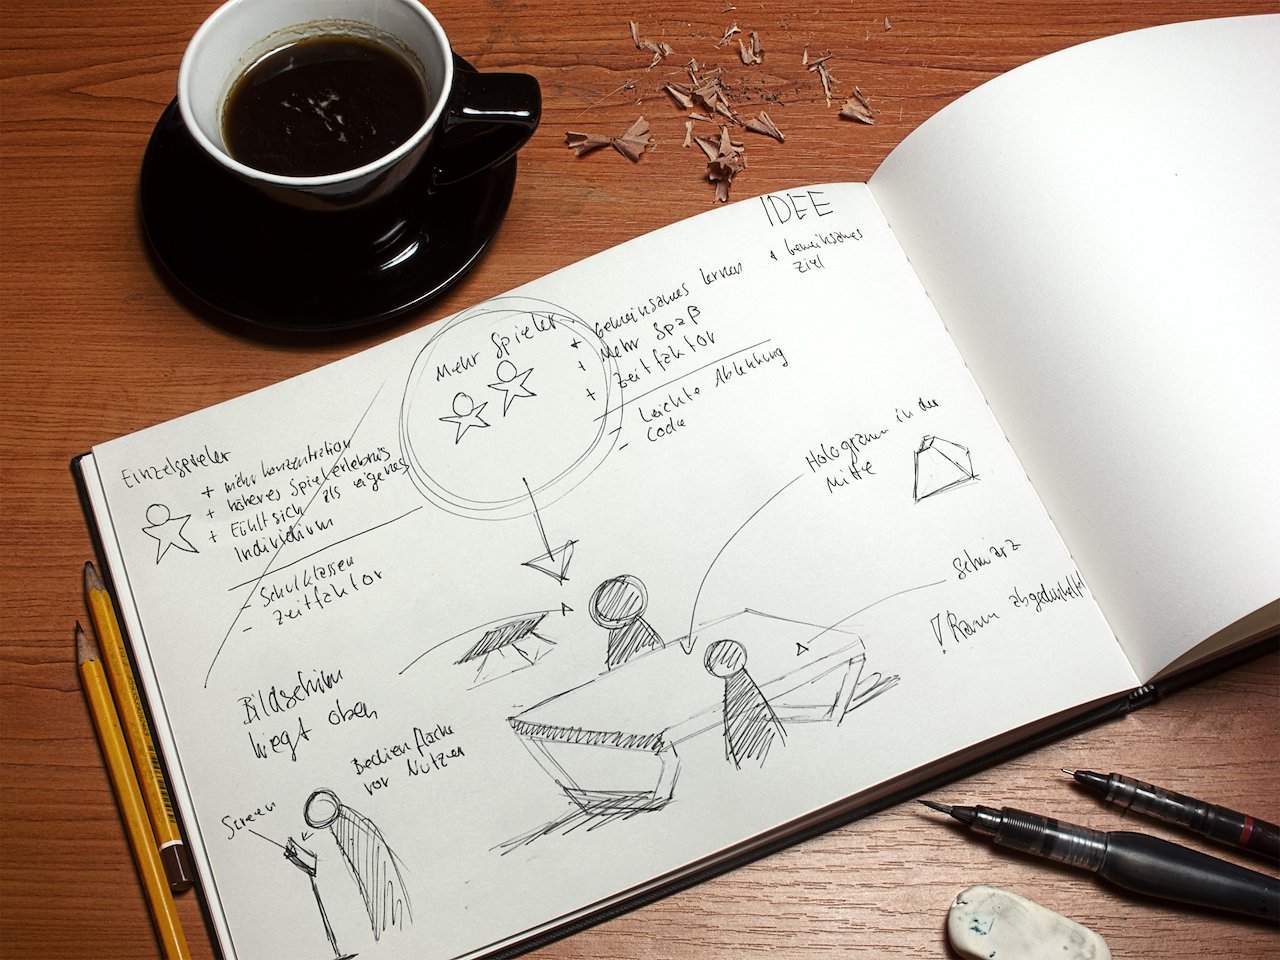 IDEE
Mehr Spieler
+ Gemeinsames lernen
+ Mehr Spaß
+ Zeitfaktor
+ Gemeinsames
Ziel
- Leichte Ablenkung
- Code
Einzelspieler
+ mehr konzentration
+ höheres Spielerlebnis
+ Fühlt sich als eigenes
Individium
- Schulklassen
- Zeitfaktor
Hologramm in der
Mitte
Schwarz
! Raum abgedunkelt
Bildschirm
liegt oben
Bedienfläche
vor Nutzer
Screen